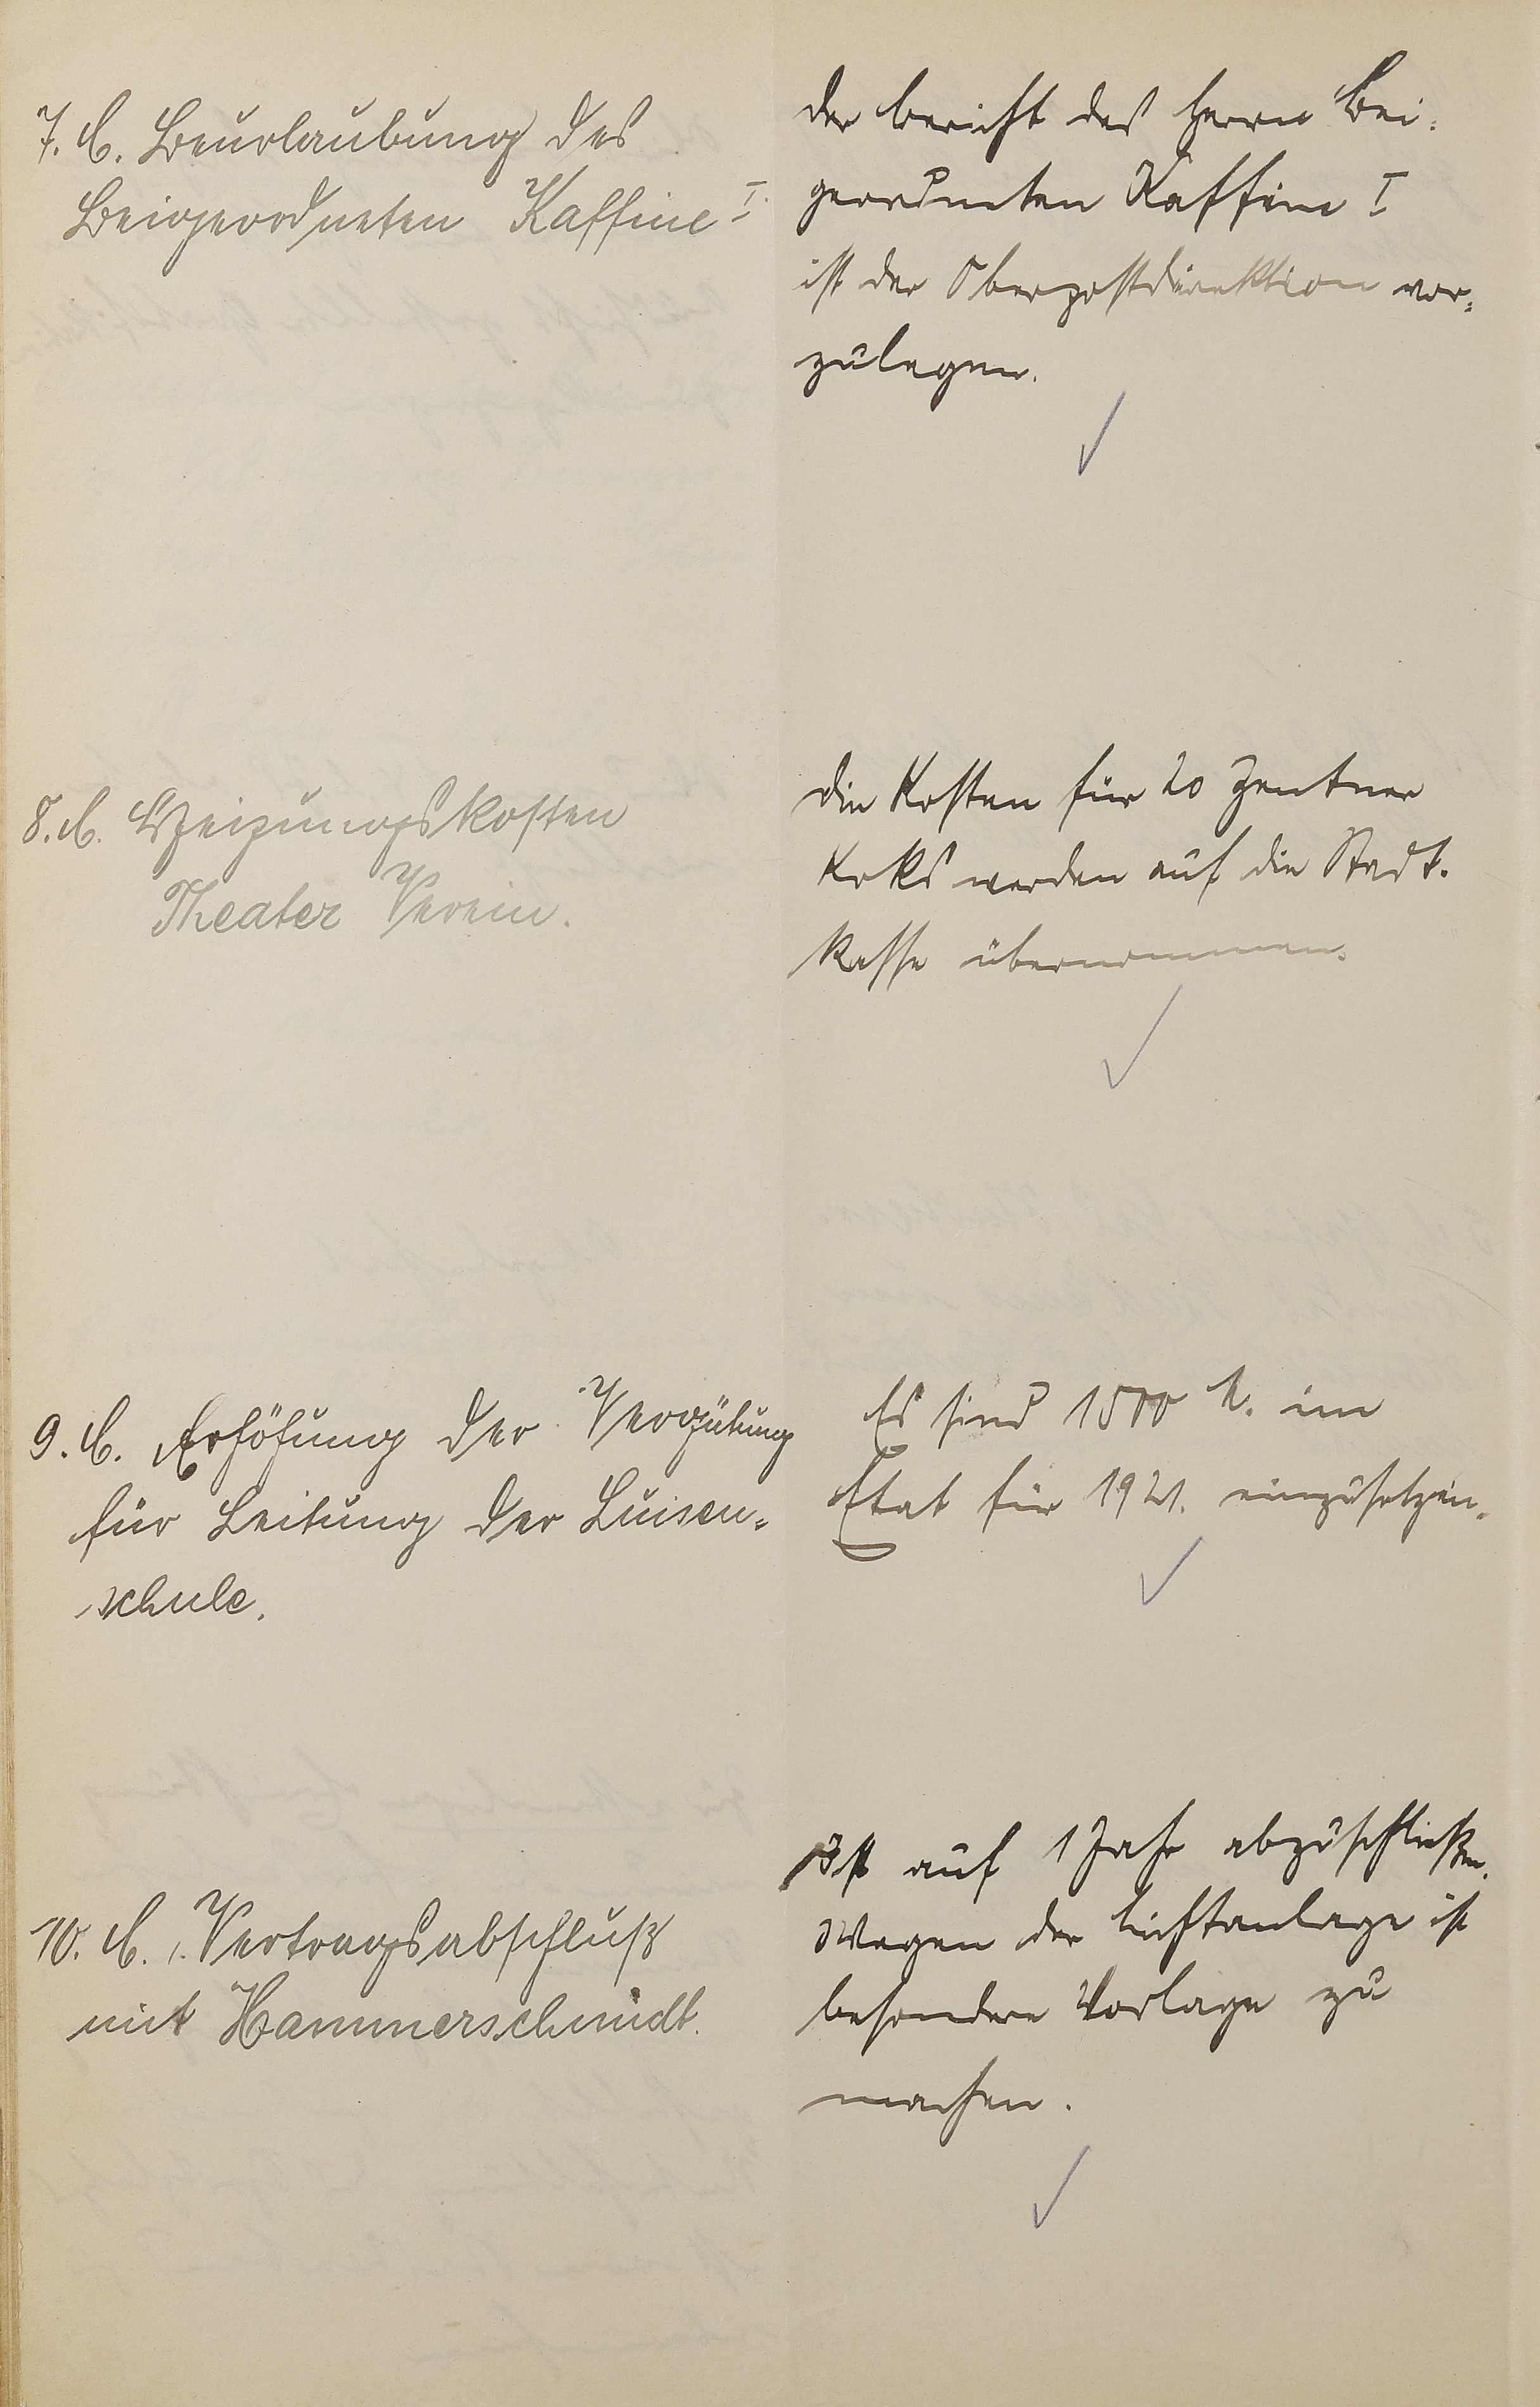 7. C. Beurlaubung des
Beigeordneten Kaffine I.
der Bericht des Herrn Bei-
geordneten Kaffine I
ist der Oberpostdirektion vor-
zulegen.
8. C. Heizungskosten
Theater Verein.
Die Kosten für 20 Zentner
Koks werden auf die Stadt-
kasse übernommen.
9. C. Erhöhung der Vergütung
für Leitung der Luisen-
schule.
Es sind 1500 M. im
Etat für 1921. einzusetzen.
10. C. Vertragsabschluß
mit Hammerschmidt.
Ist auf 1 Jahr abzuschließen.
Wegen der Lichtanlage ist
besondere Vorlage zu
machen.